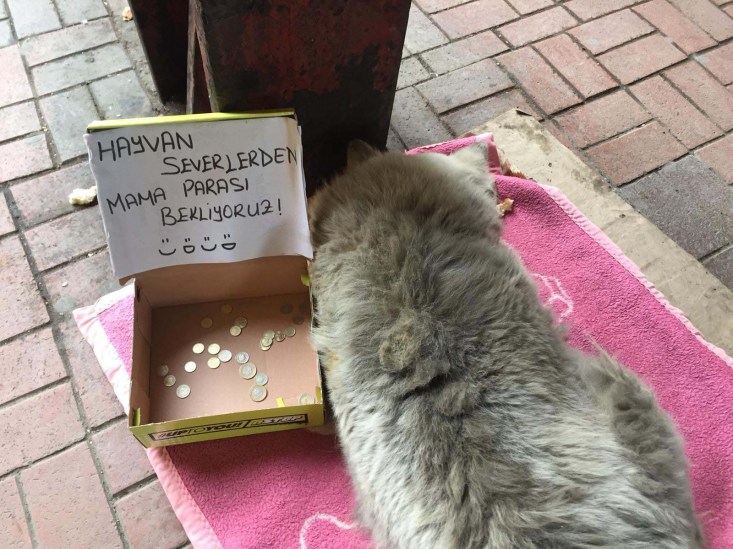 HAYVAN
SEVERLERDEN
MAMA PARASI
BEKLİYORUZ!